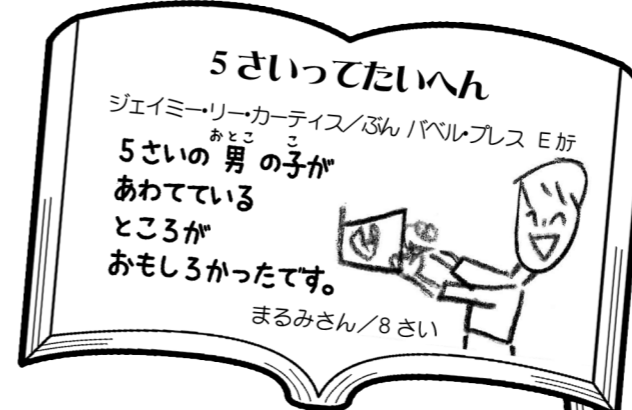 5さいってたいへん
ジェイミー・リー・カーティス／ぶん バベル・プレス Eカテ
5さいの男の子が
あわてている
ところが
おもしろかったです。
まるみさん／8さい